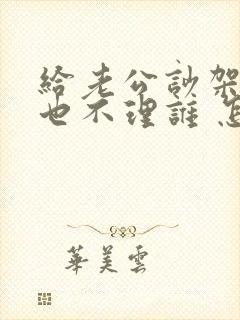 給老公訟架
也不理誰 怎
華美雲